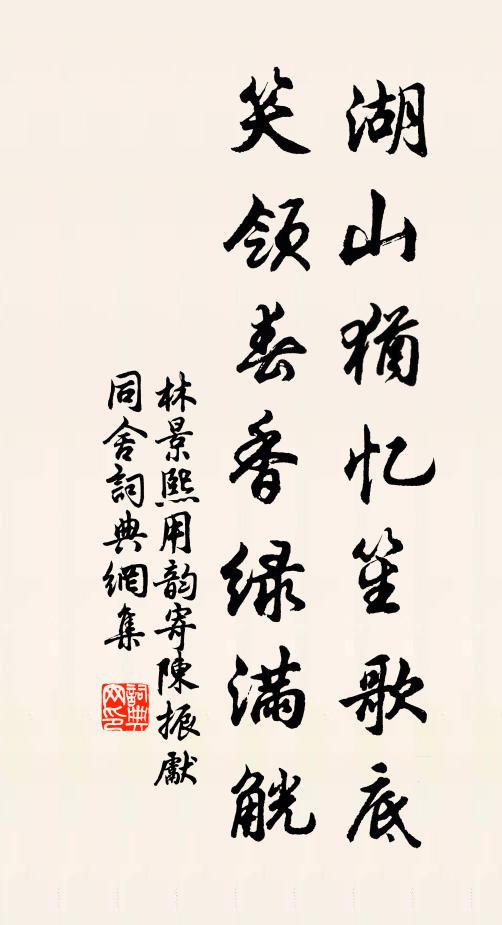 湖山犹忆笙歌底
笑领春香绿满觥
林景熙用韵寄陳振獻
同舍詞典網集
詞典网印